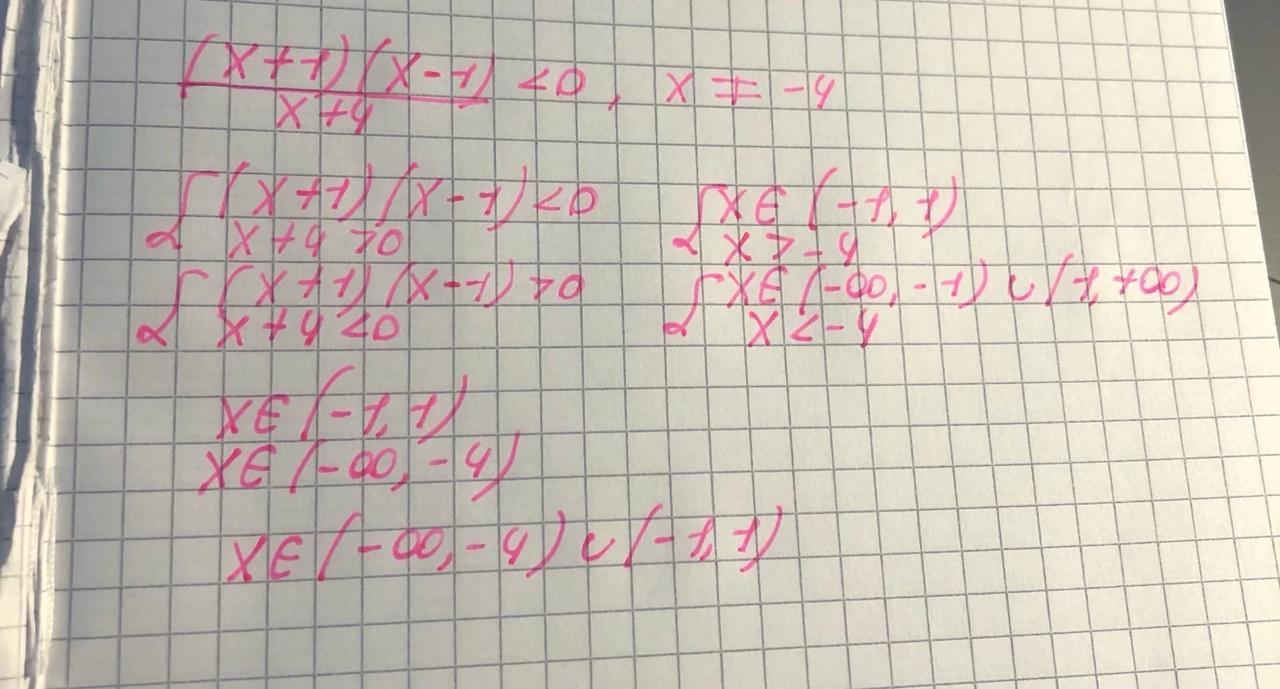 (x+1)(x-1)/x+4 <0, x ≠ -4
{ (x+1)(x-1)<0 { x∈(-1,1)
x+4>0 x>-4
{ (x+1)(x-1)>0 { x∈(-∞,-1)∪(1,+∞)
x+4<0 x<-4
x∈(-1,1)
x∈(-∞,-4)
x∈(-∞,-4)∪(-1,1)